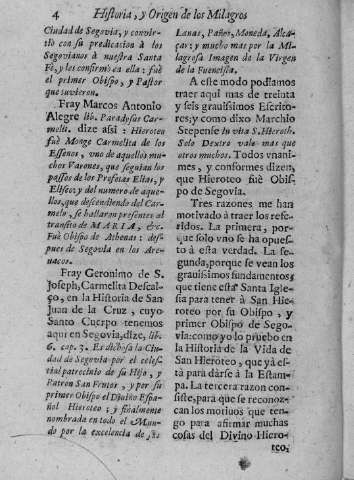 4 Historia, y Origen de los Milagros
Ciudad de Segovia, y convir-
tiò con su predicacion à los
Segovianos à nuestra Santa
Fè, y les confirmò en ella: fuè
el primer Obispo, y Pastor
que tuvieron.
Fray Marcos Antonio
Alegre lib. Paradysus Car-
melit. dize assi: Hieroteo
fuè Monge Carmelita de los
Essenos, uno de aquellos mu-
chos Varones, que seguian los
passos de los Profetas Elias, y
Eliseo; y del numero de aque-
llos, que descendiendo del Car-
melo, se hallaron presentes al
transito de MARIA, &c.
Fuè Obispo de Athenas: des-
pues de Segovia en los Are-
vacos.
Fray Geronimo de S.
Joseph, Carmelita Descal-
ço, en la Historia de San
Juan de la Cruz, cuyo
Santo Cuerpo tenemos
aqui en Segovia, dize, lib.
6. cap. 3. Es dichosa la Ciu-
dad de Segovia por el celes-
tial patrocinio de su Hijo, y
Patron San Frutos, y por su
primer Obispo el Divino Espa-
ñol Hieroteo; y finalmente
nombrada en todo el Mun-
do por la excelencia de sus
Lanas, Paños, Moneda, Alca-
çar; y mucho mas por la Mi-
lagrosa Imagen de la Virgen
de la Fuencisla.
A este modo podiamos
traer aqui mas de treinta
y seis gravissimos Escrito-
res; y como dixo Marchio
Stepense in vita S. Hieroth.
Solo Dextro vale mas que
otros muchos. Todos vnani-
mes, y conformes dizen,
que Hieroteo fuè Obis-
po de Segovia.
Tres razones me han
motivado à traer los refe-
ridos. La primera, por-
que solo vno se ha opues-
to à esta verdad. La se-
gunda, porque se vean los
gravissimos fundamentos
que tiene esta Santa Igle-
sia para tener à San Hie-
roteo por su Obispo, y
primer Obispo de Sego-
via: como yo lo pruebo en
la Historia de la Vida de
San Hieroteo, que yà es-
tà para darse à la Estam-
pa. La tercera razon con-
siste, para que se reconoz-
can los motivos que ten-
go para afirmar muchas
cosas del Divino Hiero-
teo,